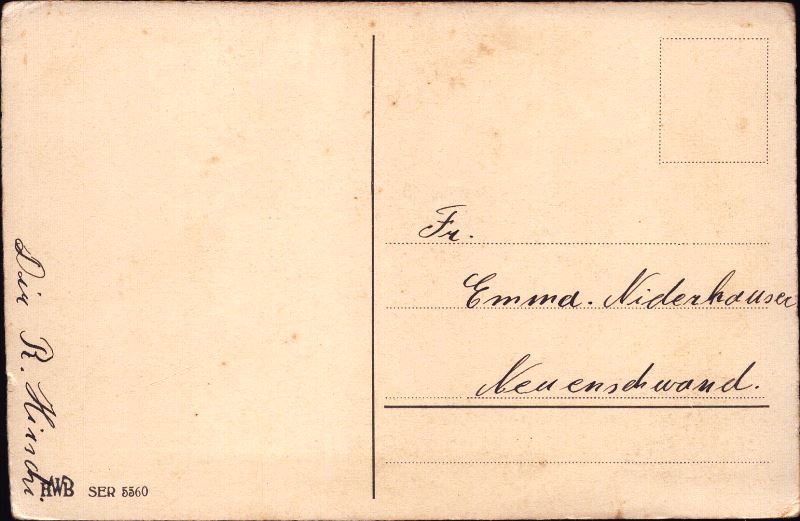 Fr.
Emma. Niderhauser
Neuenschwand.
Dir R. Hirschi
HWB SER 5560